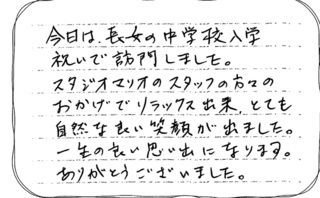 今日は、長女の中学校入学
祝いで訪問しました。
スタジオマリオのスタッフの方々の
おかげでリラックス出来、とても
自然な良い笑顔が出ました。
一生の良い思い出になります。
ありがとうございました。